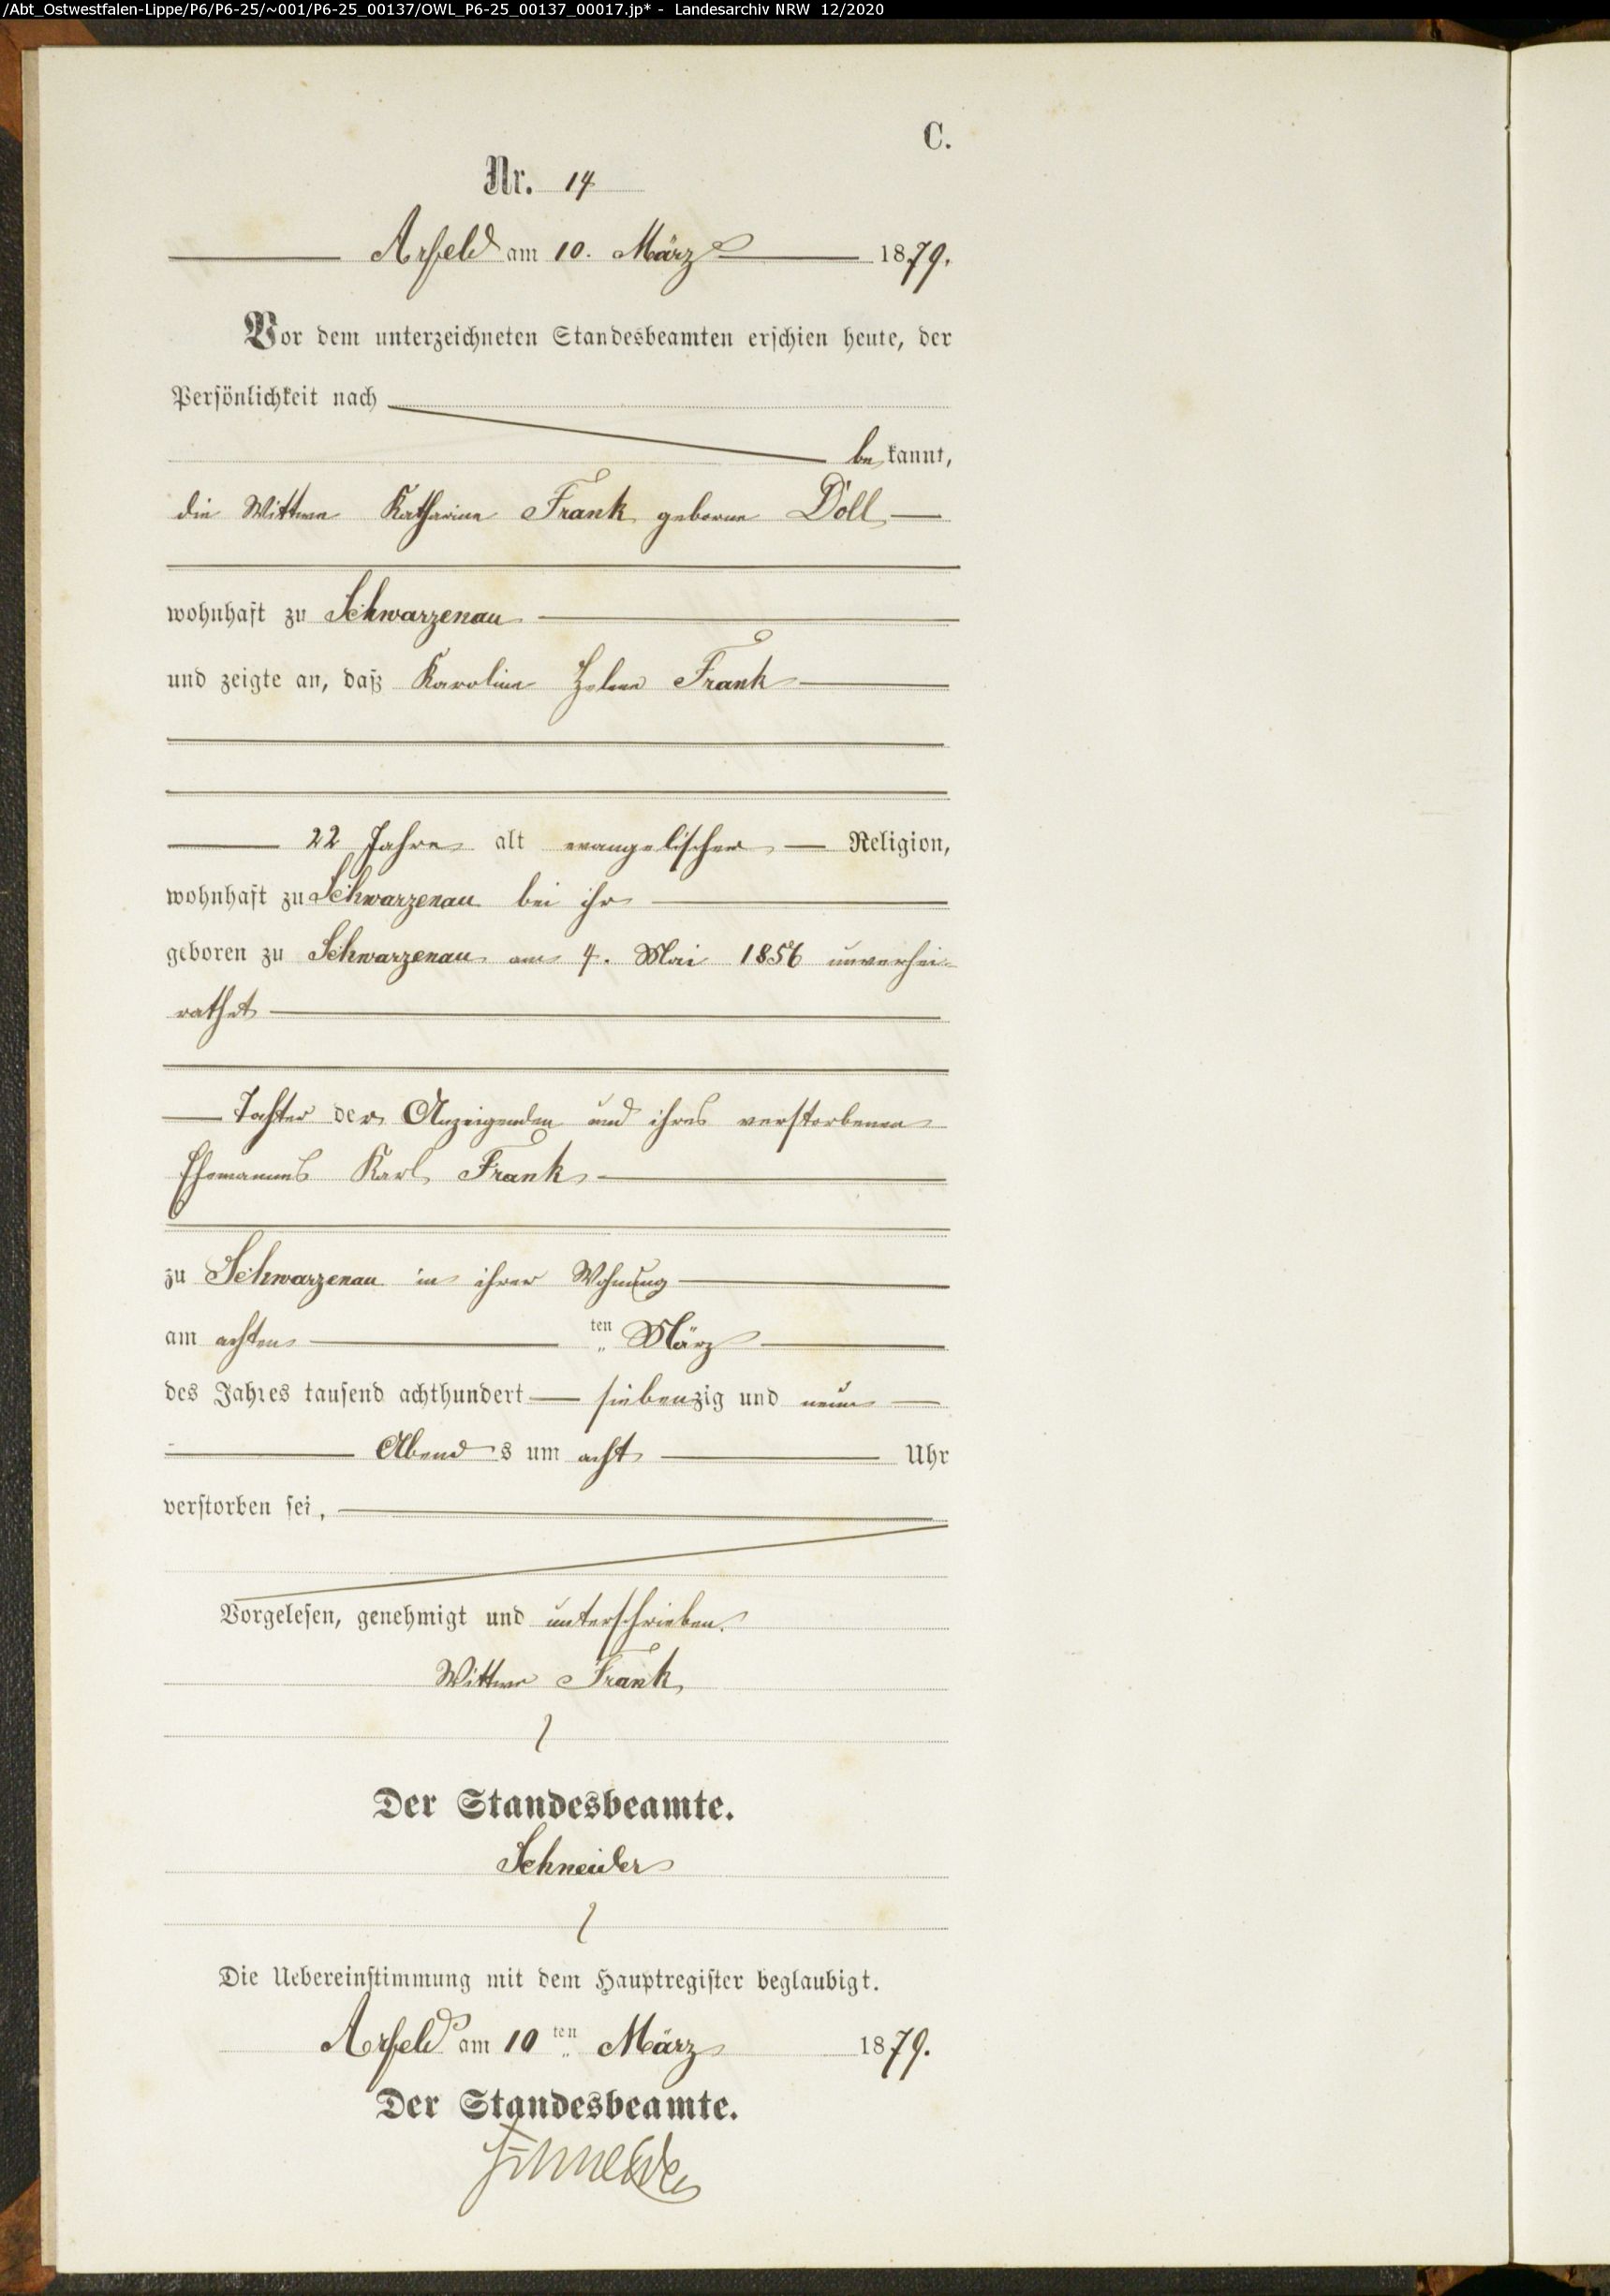 /Abt_Ostwestfalen-Lippe/P6/P6-25/~001/P6-25_00137/OWL_P6-25_00137_00017.jp* - Landesarchiv NRW 12/2020
C.
Nr. 14
Arfeld am 10. März 1879.
Vor dem unterzeichneten Standesbeamten erschien heute, der
Persönlichkeit nach
bekannt,
die Wittwe Katharine Frank geborne Döll
wohnhaft zu Schwarzenau
und zeigte an, daß Karoline Helene Frank
22 Jahre alt evangelischer Religion,
wohnhaft zu Schwarzenau bei ihr
geboren zu Schwarzenau am 4. Mai 1856 unverhei-
rathet
Tochter der Anzeigenden und ihres verstorbenen
Ehemannes Karl Frank
zu Schwarzenau in ihrer Wohnung
am achten ten März
des Jahres tausend achthundert siebenzig und neun
Abends um acht Uhr
verstorben sei,
Vorgelesen, genehmigt und unterschrieben.
Wittwe Frank
Der Standesbeamte.
Schneider
Die Uebereinstimmung mit dem Hauptregister beglaubigt.
Arfeld am 10ten März 1879.
Der Standesbeamte.
Schneider